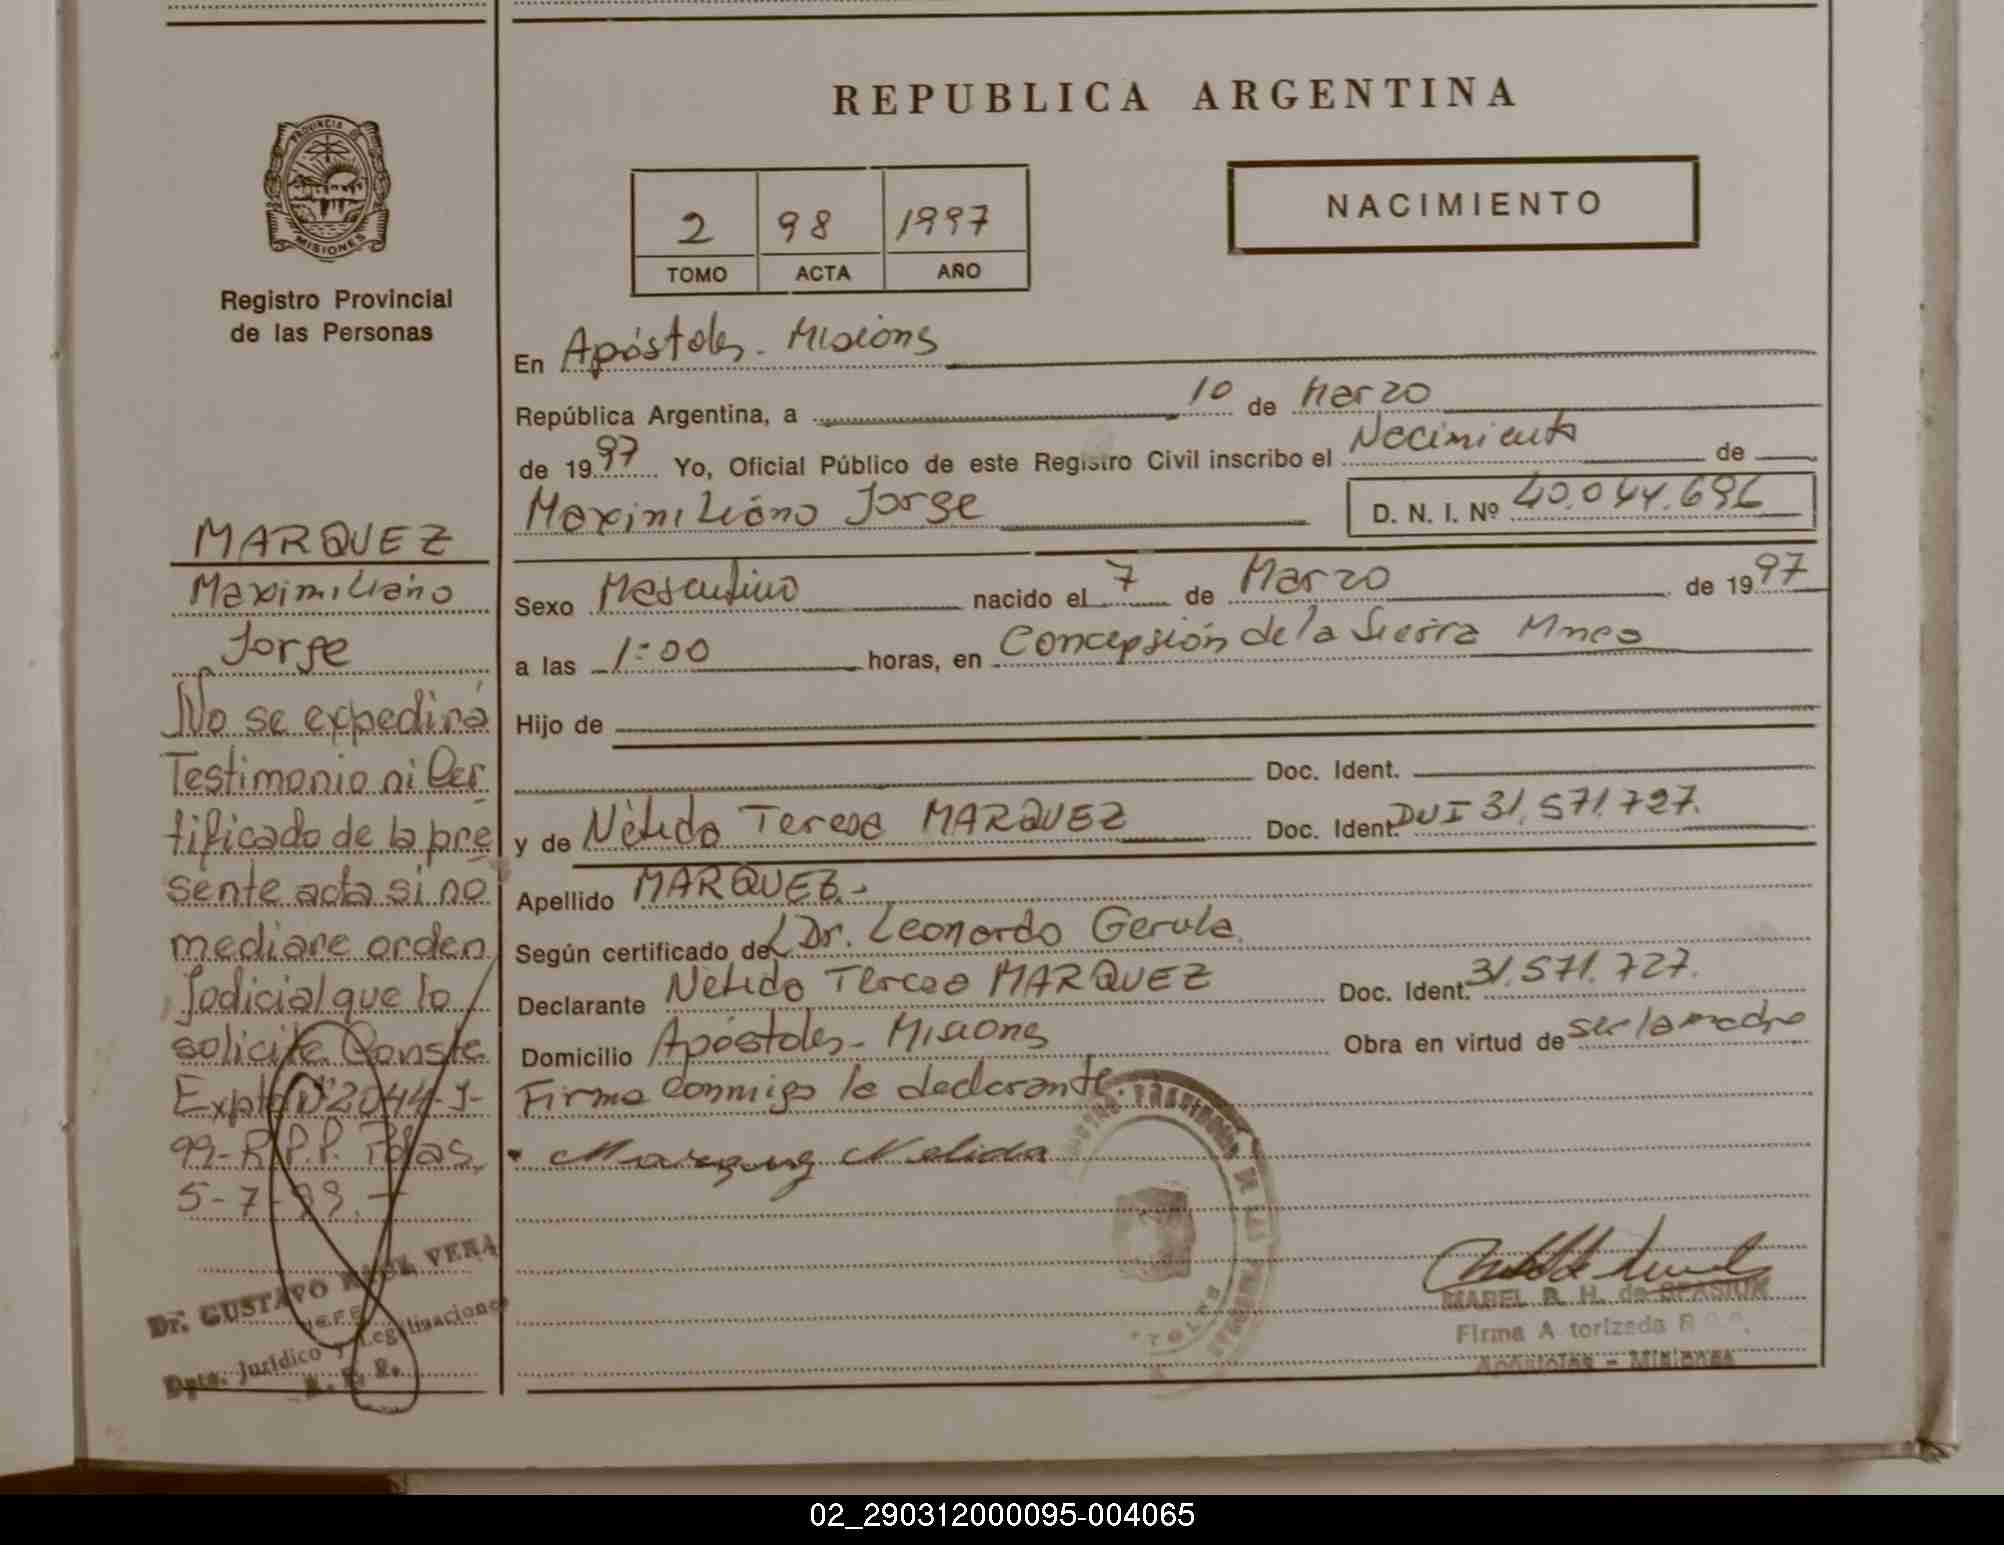 REPUBLICA ARGENTINA
PROVINCIA DE
MISIONES
Registro Provincial
de las Personas
2 98 1997
TOMO ACTA AÑO
NACIMIENTO
En Apóstoles - Misiones
República Argentina, a 10 de Marzo
de 1997 Yo, Oficial Público de este Registro Civil inscribo el Nacimiento de
Maximiliano Jorge D. N. I. Nº 40.044.696
Sexo Masculino nacido el 7 de Marzo de 1997
a las 1:00 horas, en Concepsión de la Sierra Mnes
Hijo de
Doc. Ident.
y de Nélida Teresa MARQUEZ Doc. Ident. DUI 31.571.727.
Apellido MARQUEZ.-
Según certificado del Dr. Leonardo Gerula
Declarante Nélida Teresa MARQUEZ Doc. Ident. 31.571.727.
Domicilio Apóstoles - Misiones Obra en virtud de ser la madre
Firma conmigo la declarante
Marquez Nelida
MARQUEZ
Maximiliano
Jorge
No se expedirá
Testimonio ni Cer
tificado de la pre
sente acta si no
mediare orden
Judicial que lo
solicite Conste
Expte Nº 2044-J-
99-R.P.P. Pdas.
5-7-99.-
Dr. GUSTAVO RAUL VERA
JEFE
Dpto. Jurídico y Legalizaciones
MABEL R. H. de SPASIUK
Firma Autorizada
Apóstoles - Misiones
02_290312000095-004065